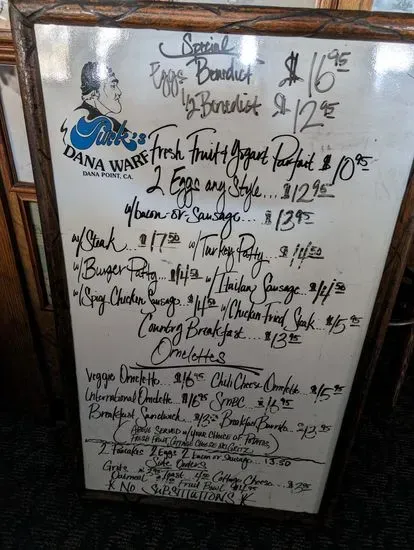 Special
Eggs Benedict $16.95
1/2 Benedict $12.95
Turk's
DANA WARF
DANA POINT, CA.
Fresh Fruit & Yogurt Parfait $10.95
2 Eggs any Style... $12.95
w/bacon-or-Sausage... $13.95
w/Steak $17.50 w/Turkey Patty $14.50
w/Burger Patty $14.50 w/Italian Sausage... $14.50
w/Spicy Chicken Sausage $14.50 w/Chicken Fried Steak $15.95
Country Breakfast $13.95
Omelettes
Veggie Omelette $16.95 Chili Cheese Omelette $15.95
International Omelette $16.95 SMBC $16.95
Breakfast Sandwich Breakfast Burrito $13.95
(ABOVE SERVED W/YOUR CHOICE OF POTATOES
FRESH FRUIT, COTTAGE CHEESE OR GRITZ)
2 Pancakes 2 Eggs 2 bacon or Sausage... 13.50
Side Orders
Grits Toast Cottage Cheese...
Oatmeal Fruit Bowl
* NO SUBSTITUTIONS *